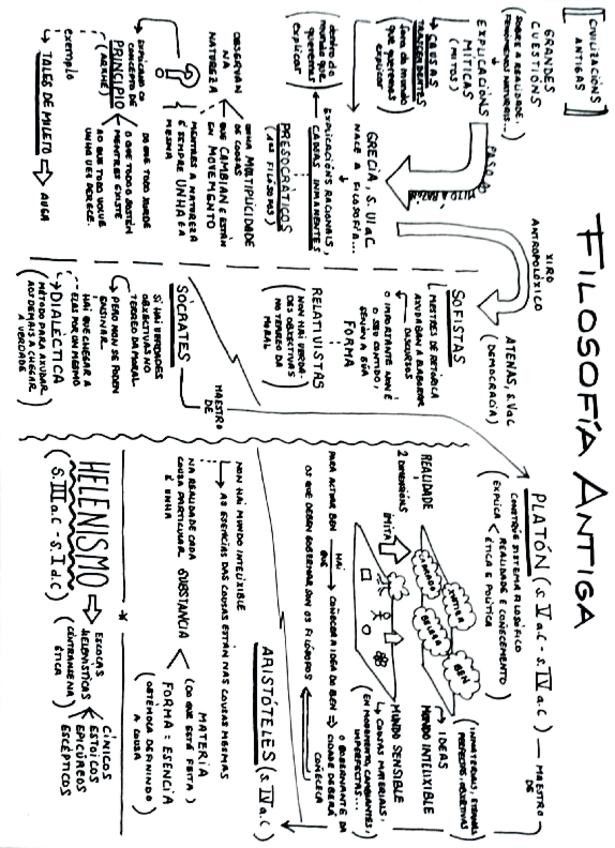 FILOSOFÍA ANTIGA
CIVILIZACIÓNS
ANTIGAS
GRANDES
CUESTIÓNS
(SOBRE A REALIDADE...
FENÓMENOS NATURAIS...)
EXPLICACIÓNS
MÍTICAS
(MITOS)
CAUSAS
TRASCENDENTES
(fóra do mundo
que queremos
explicar)
PASO
MITO A RAZÓN
GRECIA, S. VI a.C
NACE A FILOSOFÍA...
EXPLICACIÓNS RACIONAIS,
CAUSAS INMANENTES
(dentro do
mundo que
queremos
explicar
PRESOCRÁTICOS
(1os FILÓSOFOS)
OBSERVAN
NA
NATUREZA
UNHA MULTIPLICIDADE
DE COUSAS
QUE CAMBIAN E ESTÁN
EN MOVEMENTO
MENTRES A NATUREZA
É SEMPRE UNHA E A
MESMA
?
EXPLICADO CO
CONCEPTO DE
PRINCIPIO
(ARXÉ)
DO QUE TODO XURDE
O QUE TODO O SOSTÉN
MENTRES EXISTE
AO QUE TODO VOLVE
UNHA VEZ PERECE.
exemplo
TALES DE MILETO
AUGA
XIRO
ANTROPOLÓXICO
ATENAS, S. V a.C
(DEMOCRACIA)
SOFISTAS
MESTRES DE RETÓRICA
AXUDABAN A ELABORAR
DISCURSOS
O IMPORTANTE NON É
O SEU CONTIDO,
SENÓN A SÚA
FORMA
RELATIVISTAS
(NON HAI VERDA-
DES OBXECTIVAS
NO TERREO DA
MORAL
SÓCRATES
MAESTRO
DE
SI HAI VERDADES
OBXECTIVAS NO
TERREO DA MORAL
PERO NON SE PODEN
ENSINAR...
HAI QUE CHEGAR A
ELAS POR UN MESMO
DIALÉCTICA
(MÉTODO PARA AXUDAR
AOS DEMAIS A CHEGAR
Á VERDADE)
PLATÓN (S. V a.C - S. IV a.C)
MAESTRO
DE
CONSTRÚE SISTEMA FILOSÓFICO
(EXPLICA
REALIDADE E COÑECEMENTO
ÉTICA E POLÍTICA
REALIDADE
2 DIMENSIÓNS
IMITA
XUSTIZA
BELEZA
BEN
IDEAS
MUNDO INTELIXIBLE
(INMATERIAIS, ETERNAS,
PERFECTAS, OBXECTIVAS
MUNDO SENSIBLE
COUSAS MATERIAIS,
(EN MOVEMENTO, CAMBIANTES,
IMPERFECTAS...
PARA ACTUAR BEN
HAI
QUE
COÑECER A IDEA DO BEN
O GOBERNANTE DA
CIDADE DEBERÁ
COÑECELA
OS QUE DEBEN GOBERNAR SON OS FILÓSOFOS
ARISTÓTELES (S. IV a.C)
NON HAI MUNDO INTELIXIBLE
AS ESENCIAS DAS COUSAS ESTÁN NAS COUSAS MESMAS
NA REALIDADE CADA
COUSA PARTICULAR
É UNHA
SUBSTANCIA
MATERIA
(DO QUE ESTÁ FEITA)
FORMA = ESENCIA
(OBTÉMOLA DEFININDO
A COUSA)
HELENISMO
(S. III a.C - S. I d.C)
ESCOLAS
HELENÍSTICAS
(CENTRANSE NA
ÉTICA)
CÍNICOS
ESTOICOS
EPICÚREOS
ESCÉPTICOS